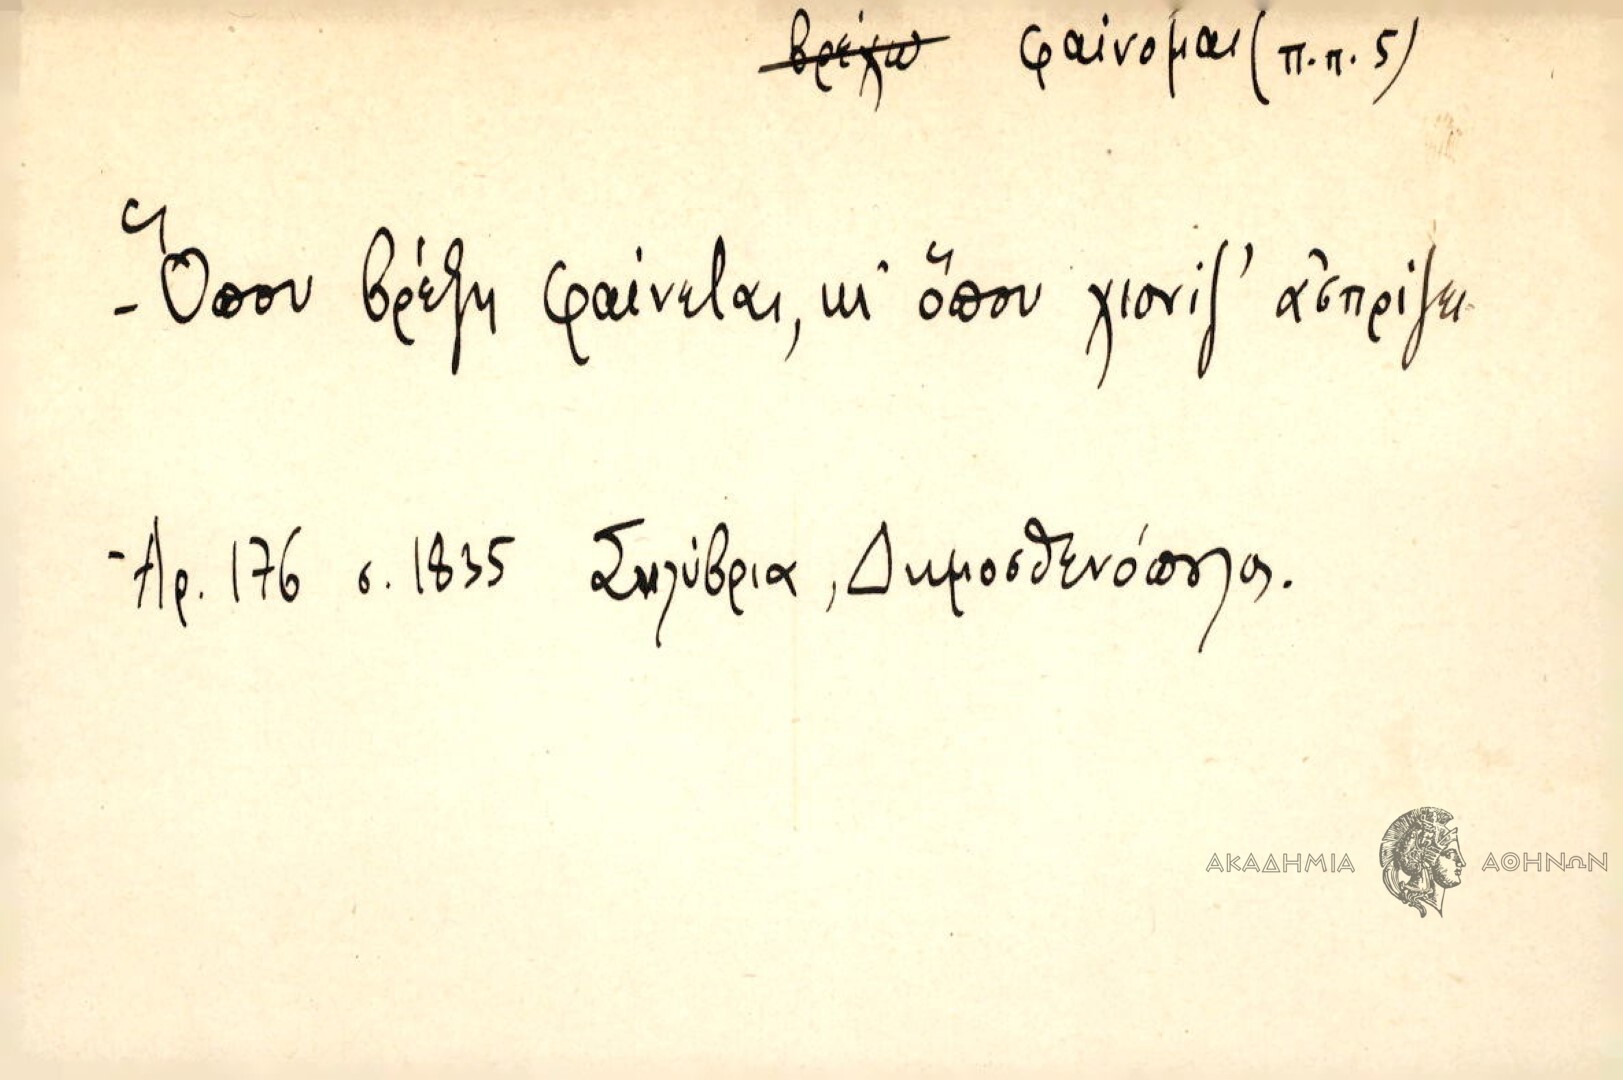 βρέχω φαίνομαι (π.π. 5)
- Ὅπου βρέξη φαίνεται, κι' ὅπου χιονίζ' ἀσπρίζει
- Ἀρ. 176 σ. 1835 Σηλύβρια, Δημοσθενόπουλος.
ΑΚΑΔΗΜΙΑ ΑΘΗΝΩΝ